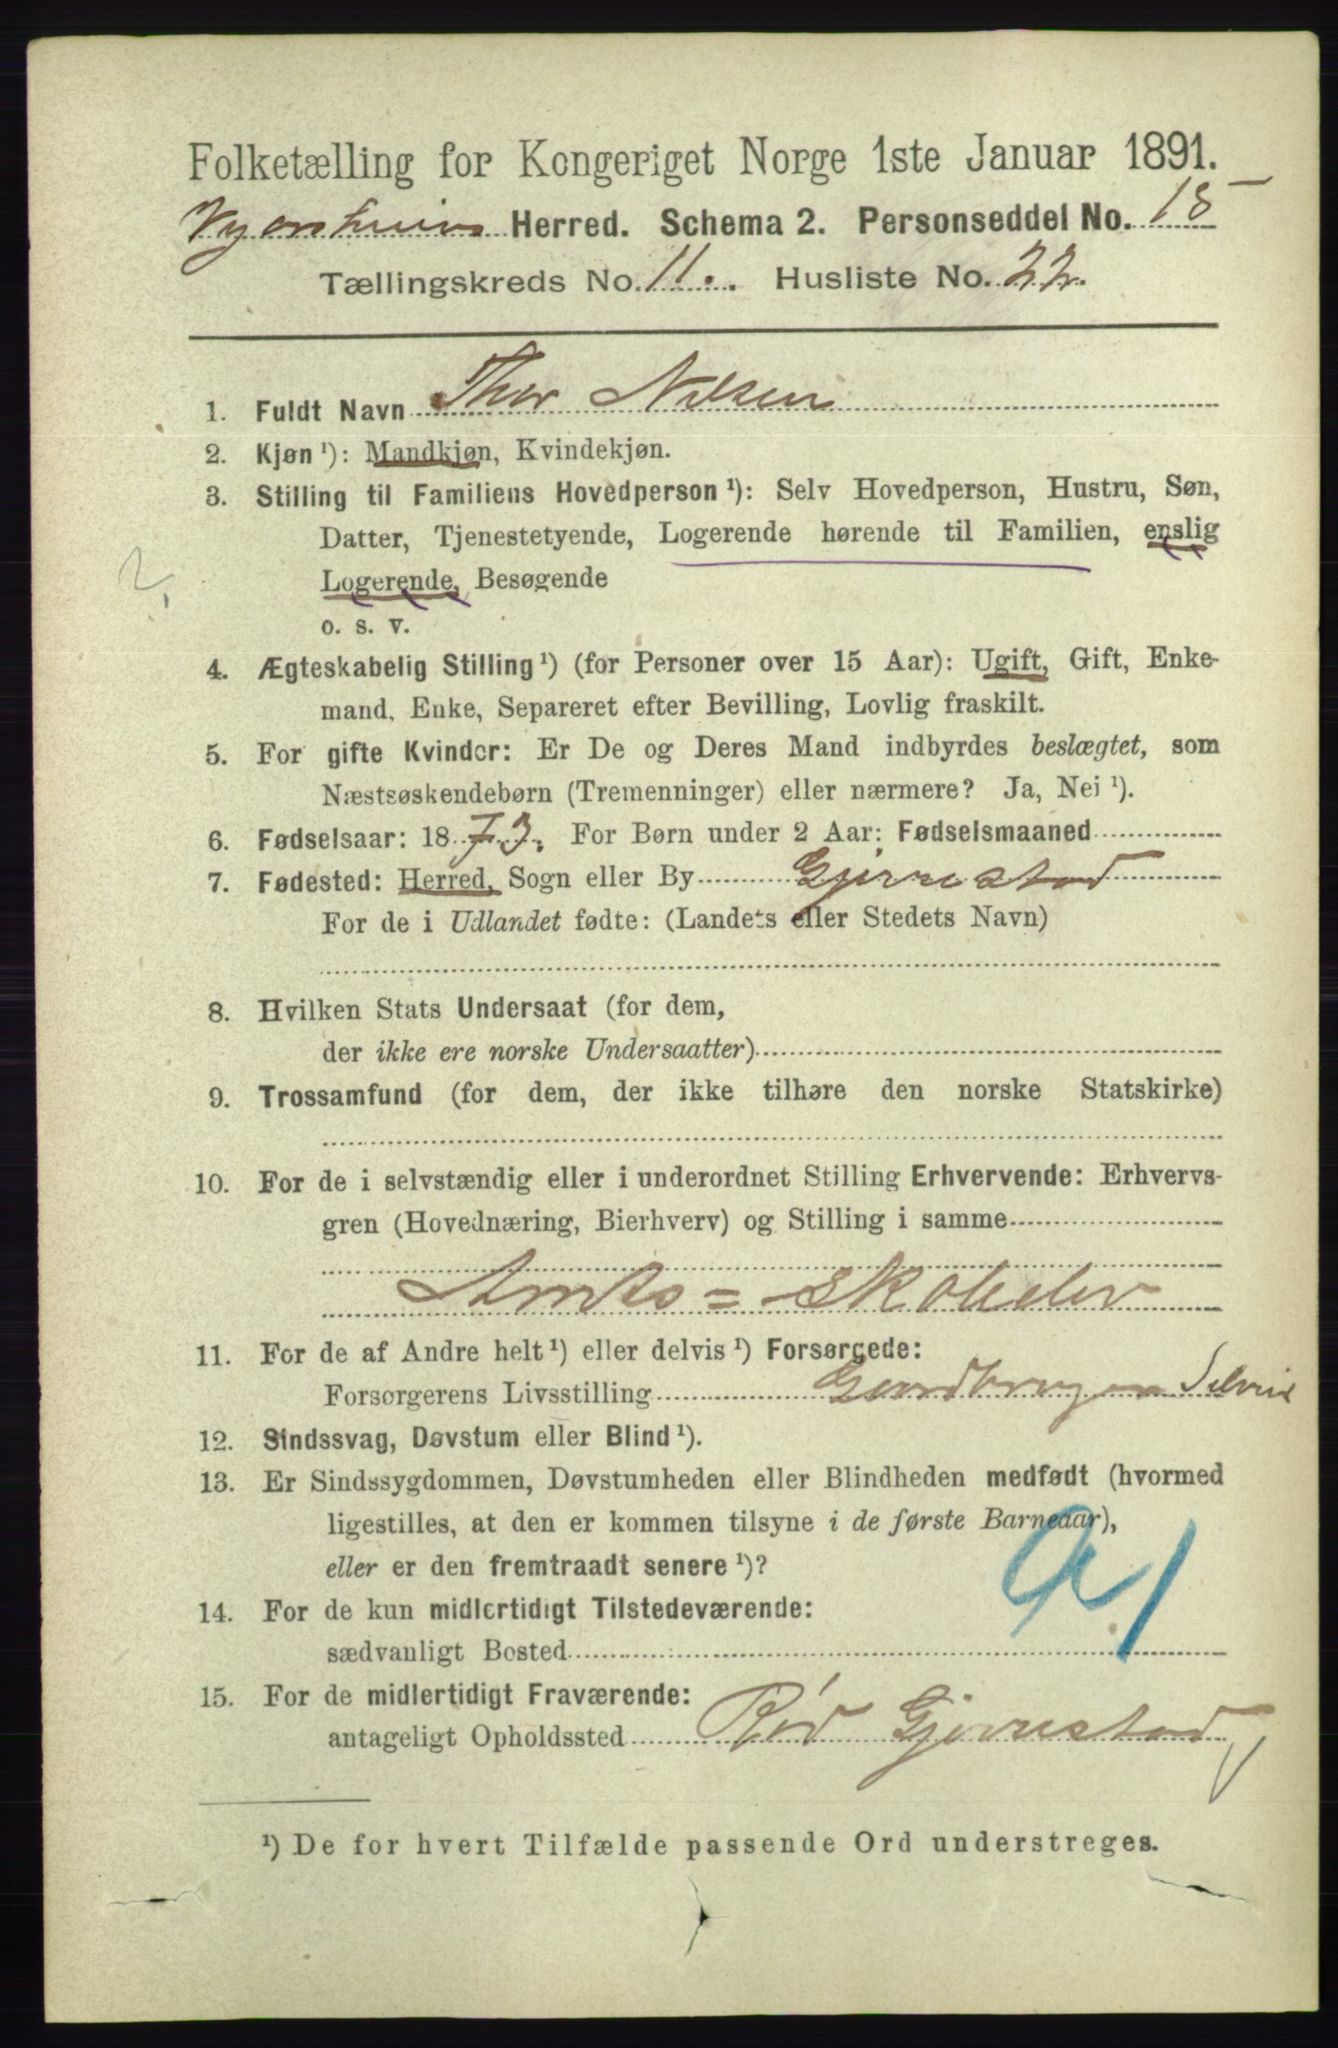 Folketælling for Kongeriget Norge 1ste Januar 1891.
Herred. Schema 2. Personseddel No. 15
Tællingskreds No. 11. Husliste No. 22.
1. Fuldt Navn Thor Nilsen
2. Kjøn ¹): Mandkjøn, Kvindekjøn.
3. Stilling til Familiens Hovedperson ¹): Selv Hovedperson, Hustru, Søn,
Datter, Tjenestetyende, Logerende hørende til Familien, enslig
Logerende, Besøgende
o. s. v.
4. Ægteskabelig Stilling ¹) (for Personer over 15 Aar): Ugift, Gift, Enke-
mand, Enke, Separeret efter Bevilling, Lovlig fraskilt.
5. For gifte Kvinder: Er De og Deres Mand indbyrdes beslægtet, som
Næstsøskendebørn (Tremenninger) eller nærmere? Ja, Nei ¹).
6. Fødselsaar: 1873. For Børn under 2 Aar: Fødselsmaaned
7. Fødested: Herred, Sogn eller By Gjerrestad
For de i Udlandet fødte: (Landets eller Stedets Navn)
8. Hvilken Stats Undersaat (for dem,
der ikke ere norske Undersaatter)
9. Trossamfund (for dem, der ikke tilhøre den norske Statskirke)
10. For de i selvstændig eller i underordnet Stilling Erhvervende: Erhvervs-
gren (Hovednæring, Bierhverv) og Stilling i samme
Amts=Skoleelev
11. For de af Andre helt ¹) eller delvis ¹) Forsørgede:
Forsørgerens Livsstilling Gaardbruger Selveier
12. Sindssvag, Døvstum eller Blind ¹).
13. Er Sindssygdommen, Døvstumheden eller Blindheden medfødt (hvormed
ligestilles, at den er kommen tilsyne i de første Barneaar),
eller er den fremtraadt senere ¹)?
14. For de kun midlertidigt Tilstedeværende:
sædvanligt Bosted
15. For de midlertidigt Fraværende:
antageligt Opholdssted Rød Gjerrestad
¹) De for hvert Tilfælde passende Ord understreges.